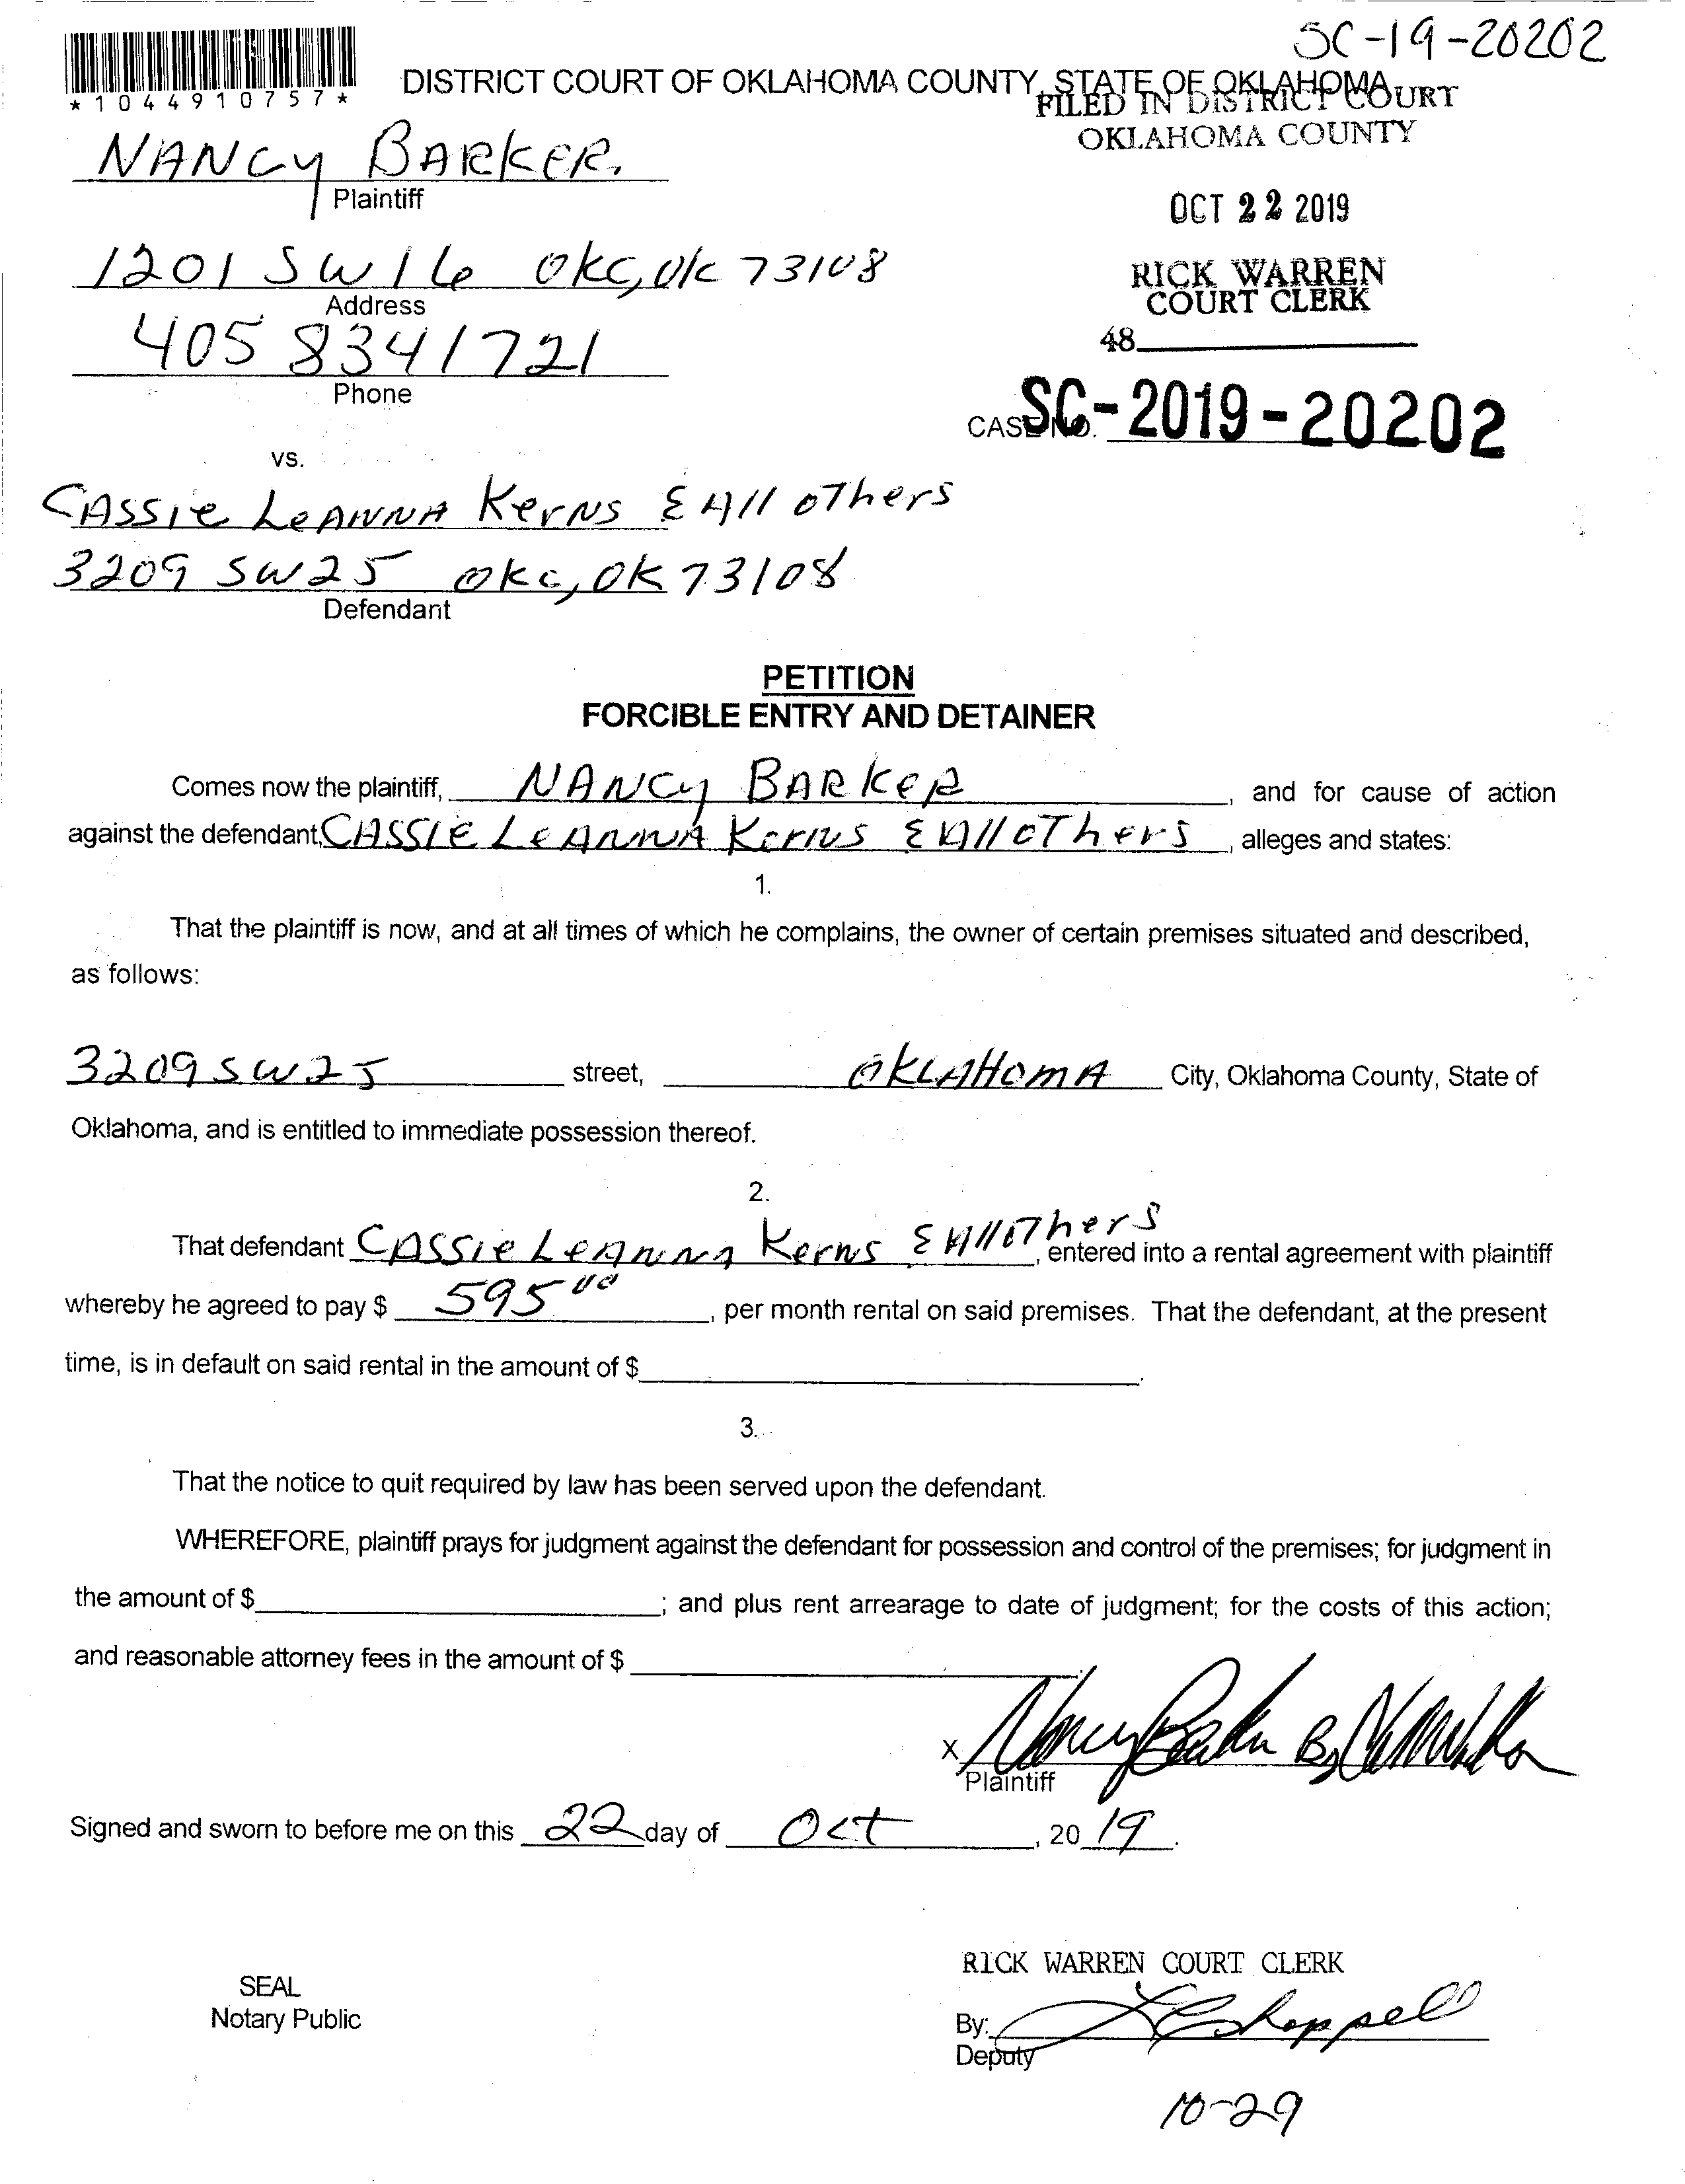 SC-19-20202
*1044910757*
DISTRICT COURT OF OKLAHOMA COUNTY, STATE OF OKLAHOMA
FILED IN DISTRICT COURT
OKLAHOMA COUNTY
NANCY BARKER.
Plaintiff
OCT 22 2019
1201 SW 16 OKC, OK 73108
Address
RICK WARREN
COURT CLERK
405 8341721
Phone
48
CASE NO. SC-2019-20202
vs.
CASSIE LeANNA KerNS & All oThers
3209 SW 25 OKC, OK 73108
Defendant
PETITION
FORCIBLE ENTRY AND DETAINER
Comes now the plaintiff, NANCY BARKER, and for cause of action
against the defendant, CASSIE LeANNA KerNS & All oThers, alleges and states:
1.
That the plaintiff is now, and at all times of which he complains, the owner of certain premises situated and described,
as follows:
3209 SW 25 street, OKLAHOMA City, Oklahoma County, State of
Oklahoma, and is entitled to immediate possession thereof.
2.
That defendant CASSIE LeANNA KerNS & All oThers, entered into a rental agreement with plaintiff
whereby he agreed to pay $ 595 00, per month rental on said premises. That the defendant, at the present
time, is in default on said rental in the amount of $.
3.
That the notice to quit required by law has been served upon the defendant.
WHEREFORE, plaintiff prays for judgment against the defendant for possession and control of the premises; for judgment in
the amount of $; and plus rent arrearage to date of judgment; for the costs of this action;
and reasonable attorney fees in the amount of $.
X Nancy Barker By
Plaintiff
Signed and sworn to before me on this 22 day of Oct, 2019.
RICK WARREN COURT CLERK
SEAL
Notary Public
By: Chappell
Deputy
10-29